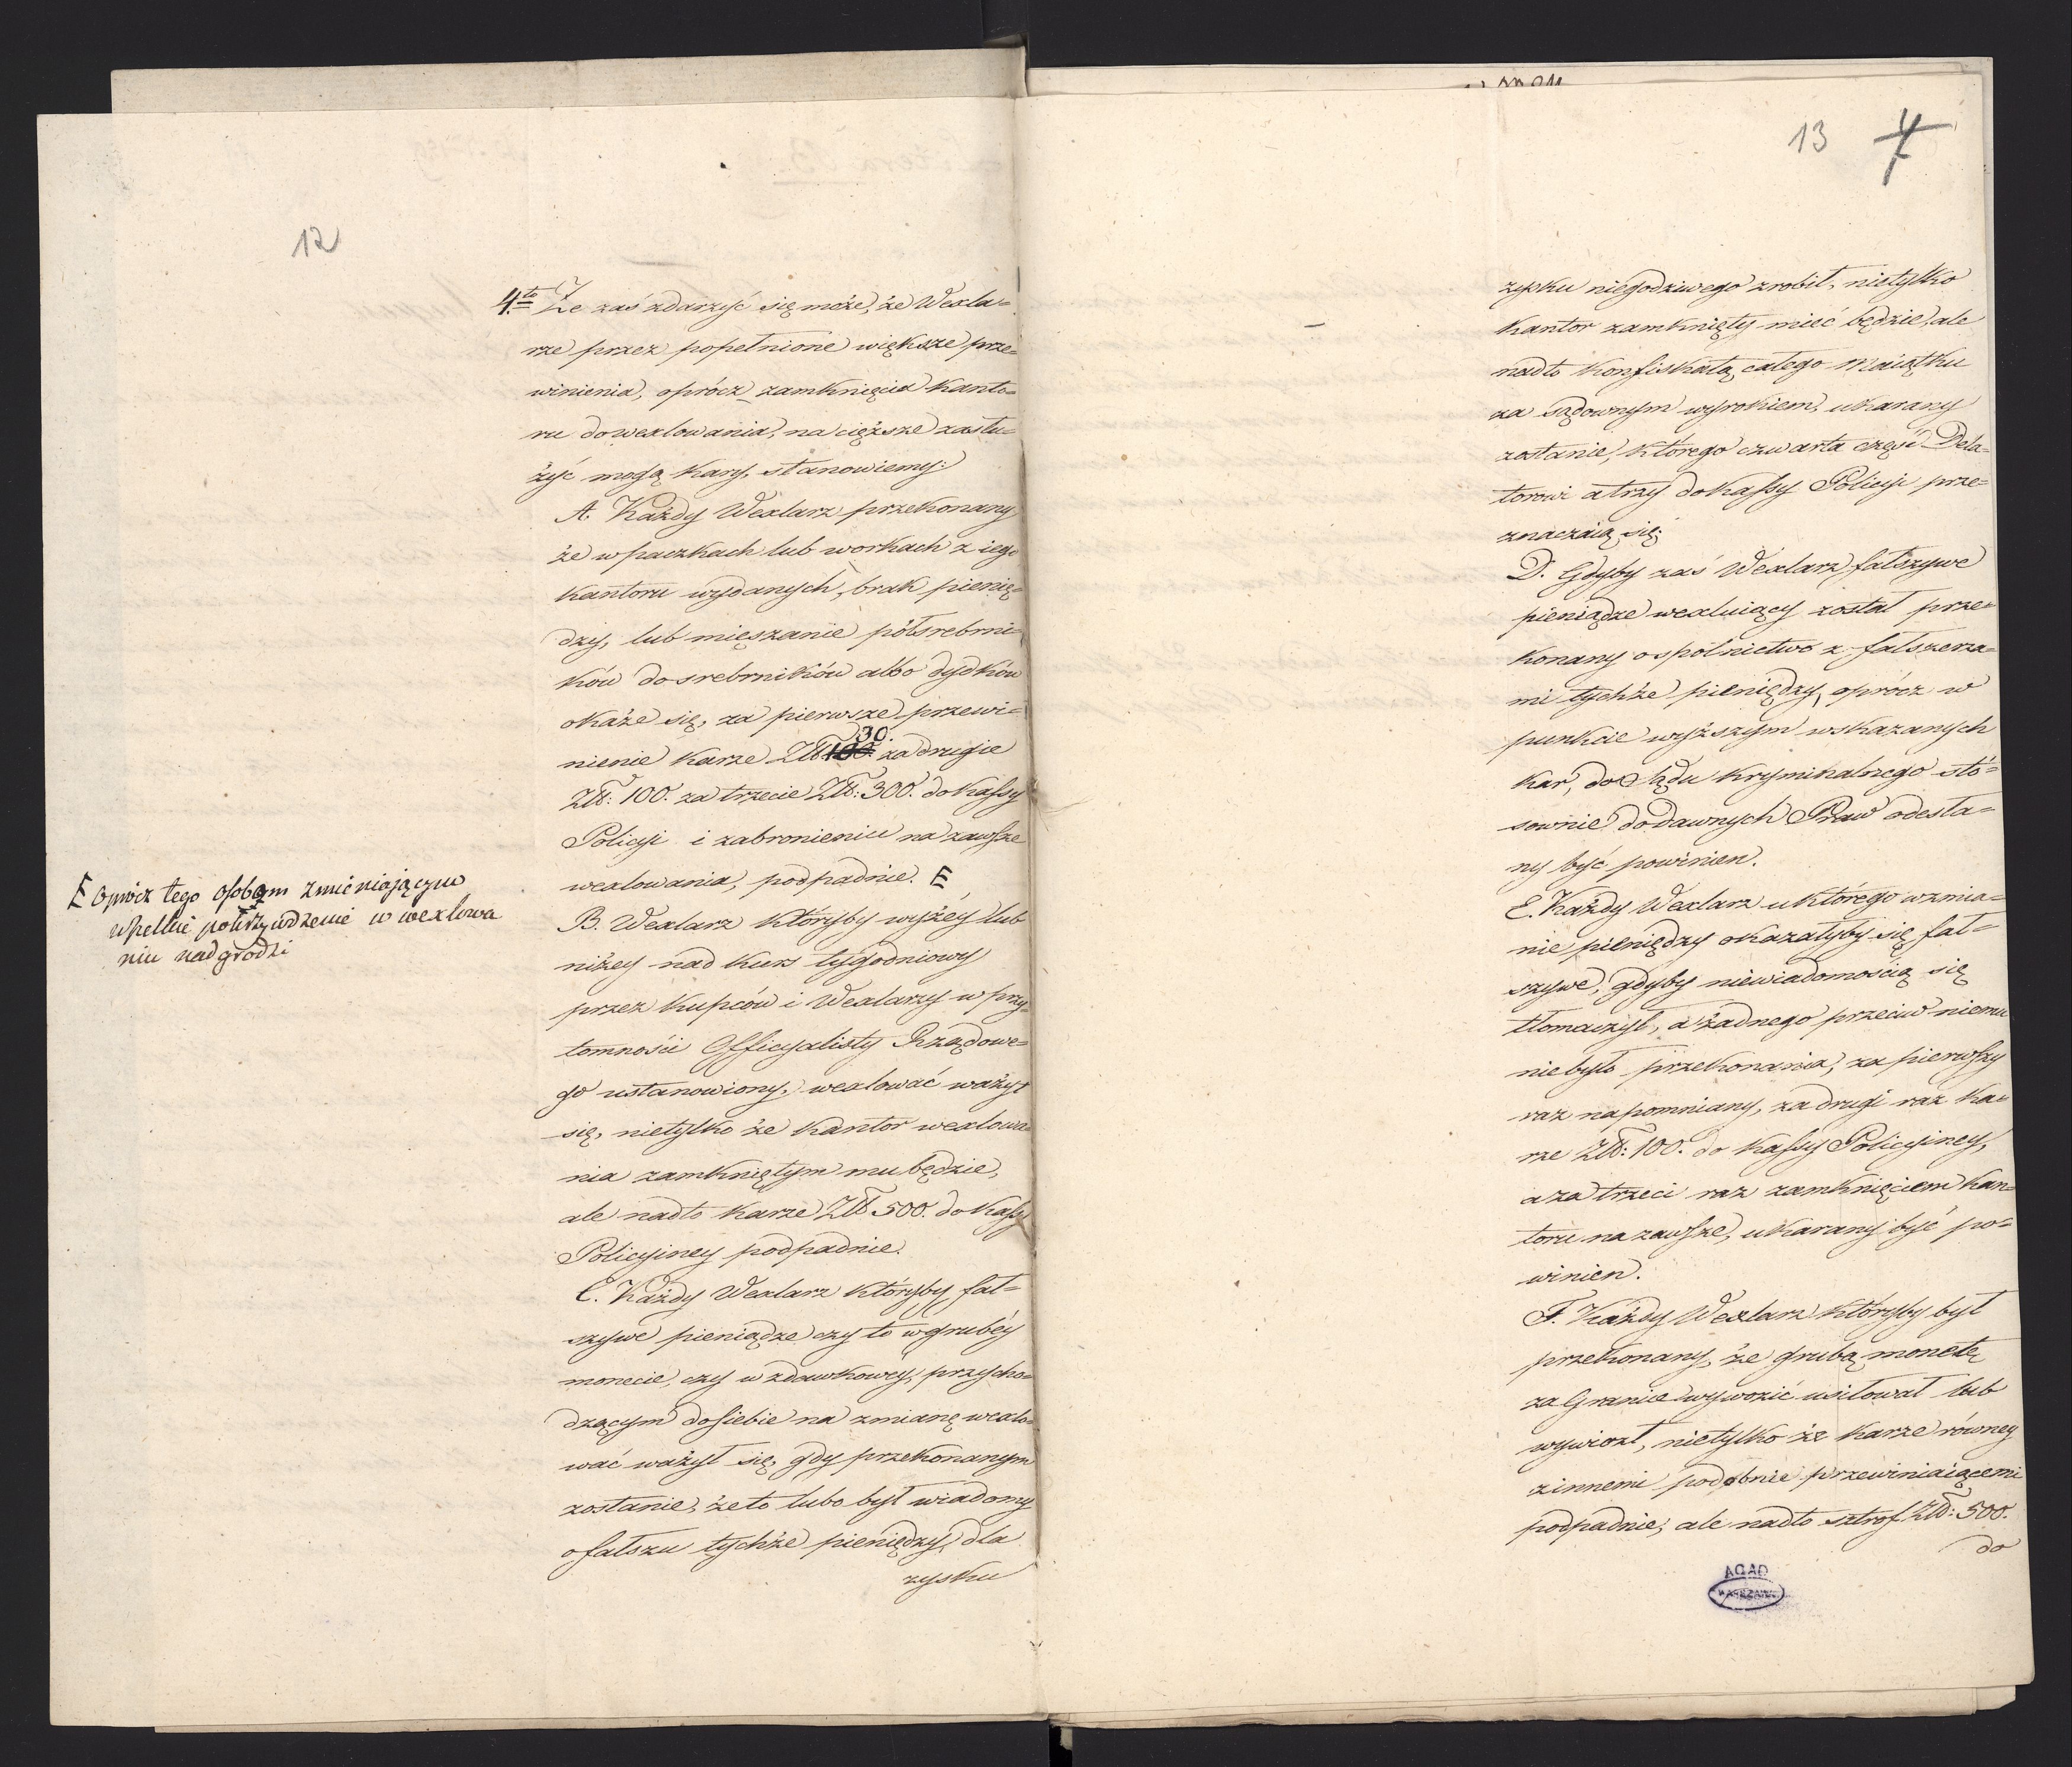 12
4.to Że zaś zdarzyć się może, że Wexla=
rze przez popełnione większe prze=
winienia, oprócz zamknięcia Kanto=
ru do wexlowania, na cięższe zasłu=
żyć mogą Kary, stanowiemy:
A. Każdy Wexlarz przekonany
że w paczkach lub workach z iego
Kantoru wydanych, brak pienię=
dzy, lub mieszanie półsrebrni=
ków do srebrników albo dydków
okaże się, za pierwsze przewi=
30.
nienie karze Złt: 100. za drugie
Złt: 100. za trzecie Złt: 300. do Kassy
Policyi i zabronieniu na zawsze
wexlowania, podpadnie. E
E Oprócz tego osobom zmieniającym
wszelkie pokrzywdzenie w wexlowa
niu nadgrodzi
B. Wexlarz któryby wyżéy lub
niżey nad kurs tygodniowy
przez Kupców i Wexlarzy w przy=
tomności Officyalisty Rządowe=
go ustanowiony, wexlować ważył
się, nietylko że Kantor wexlowa=
nia zamkniętym mu będzie,
ale nadto karze Złt 500. do Kassy
Policyiney podpadnie.
C. Każdy Wexlarz któryby fał=
szywe pieniądze czy to w grubéy
monecie, czy w zdawkowéy, przycho=
dzącym do siebie na zmianę wexlo=
wać ważył się, gdy przekonanym
zostanie, że to lubo był wiadomy
o fałszu tychże pieniędzy, dla
zysku
13
zysku niegodziwego zrobił, nietylko
Kantor zamknięty mieć będzie, ale
nadto Konfiskatą całego Maiątku
za sądownym wyrokiem, ukarany
zostanie, którego czwarta część Dela=
torowi a trzy do Kassy Policyi prze=
znaczaią się.
D. Gdyby zaś Wexlarz fałszywe
pieniądze wexluiący został prze=
konany o spólnictwo z fałszerza=
mi tychże pieniędzy, oprócz w
punkcie wyższym wskazanych
kar, do Sądu Kryminalnego sto=
sownie do dawnych Praw odesła=
ny być powinien.
E. Każdy Wexlarz u którego w zmia=
nie pieniędzy okazałyby się fał=
szywe, gdyby niewiadomością się
tłomaczył, a żadnego przeciw niemu
nie było przekonania, za pierwszy
raz napomniany, za drugi raz ka=
rze Złt: 100. do Kassy Policyiney,
a za trzeci raz zamknięciem Kan=
toru na zawsze, ukarany być po=
winien.
F. Każdy Wexlarz któryby był
przekonany, że grubą monetę
za Granice wywozić usiłował lub
wywiozł, nietylko że karze równey
z innemi podobnie przewiniaiącemi
podpadnie, ale nadto sztrof Złt: 500.
do
AGAD
WARSZAWA